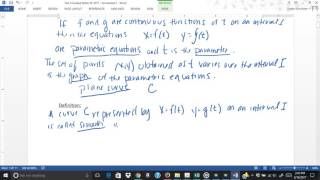 If f and g are continuous functions of t on an interval I
then the equations x=f(t) y=g(t)
are parametric equations and t is the parameter.
The set of points (x,y) obtained as t varies over the interval I
is the graph of the parametric equations.
plane curve C
Definition:
A curve C represented by x=f(t) y=g(t) on an interval I
is called smooth